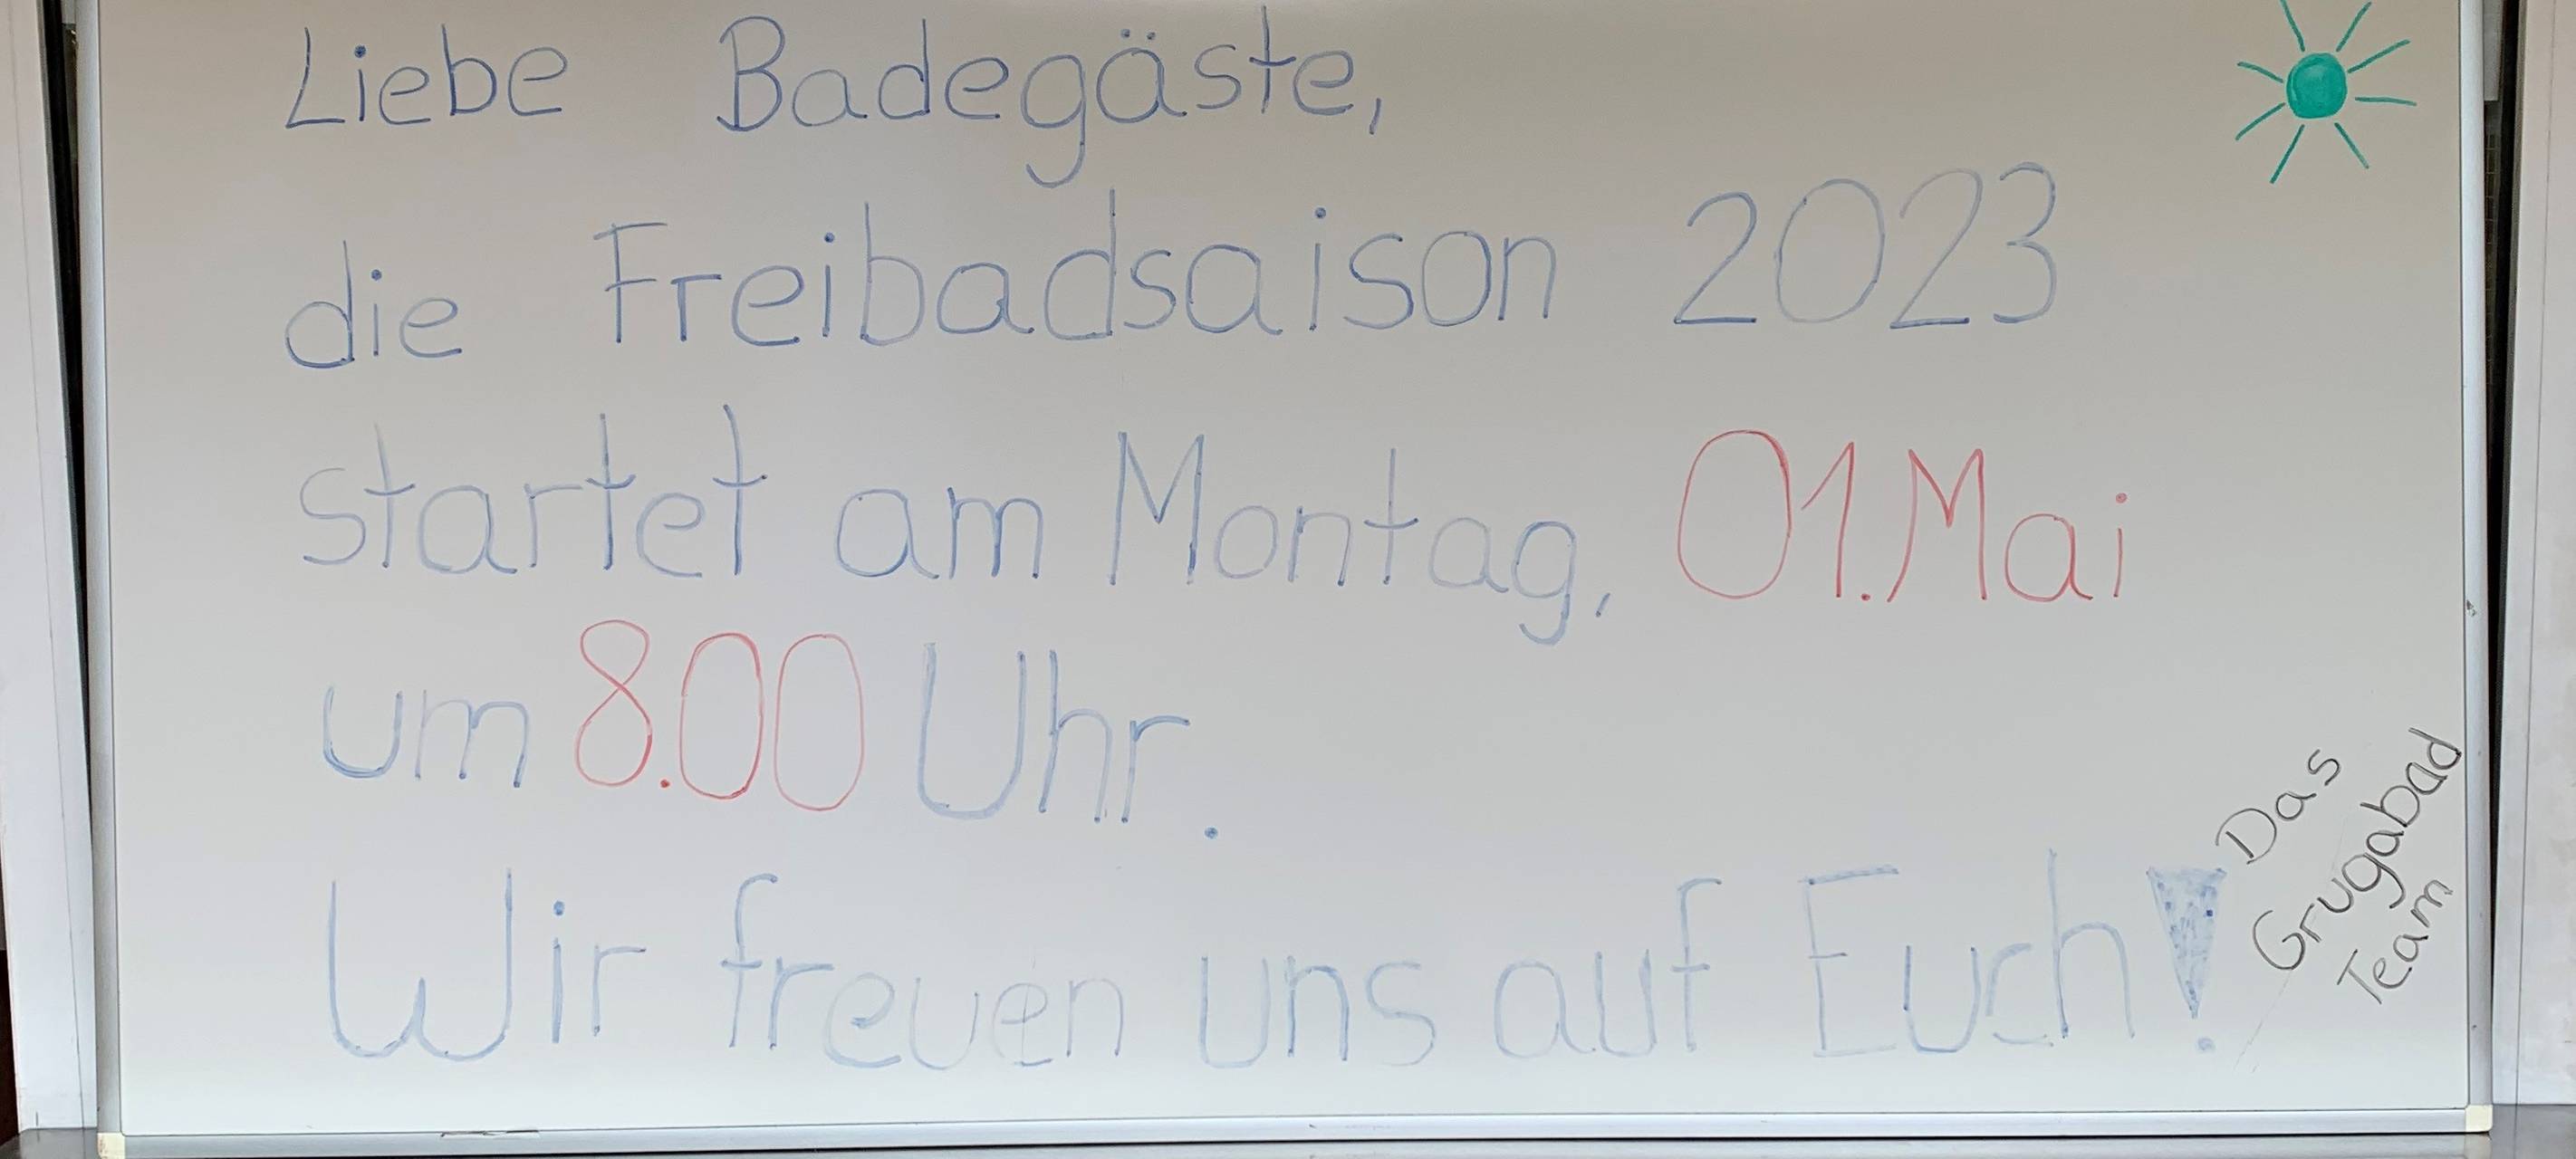 Liebe Badegäste,
die Freibadsaison 2023
startet am Montag, 01.Mai
um 8.00 Uhr.
Wir freuen uns auf Euch!
Das
Grugabad
Team